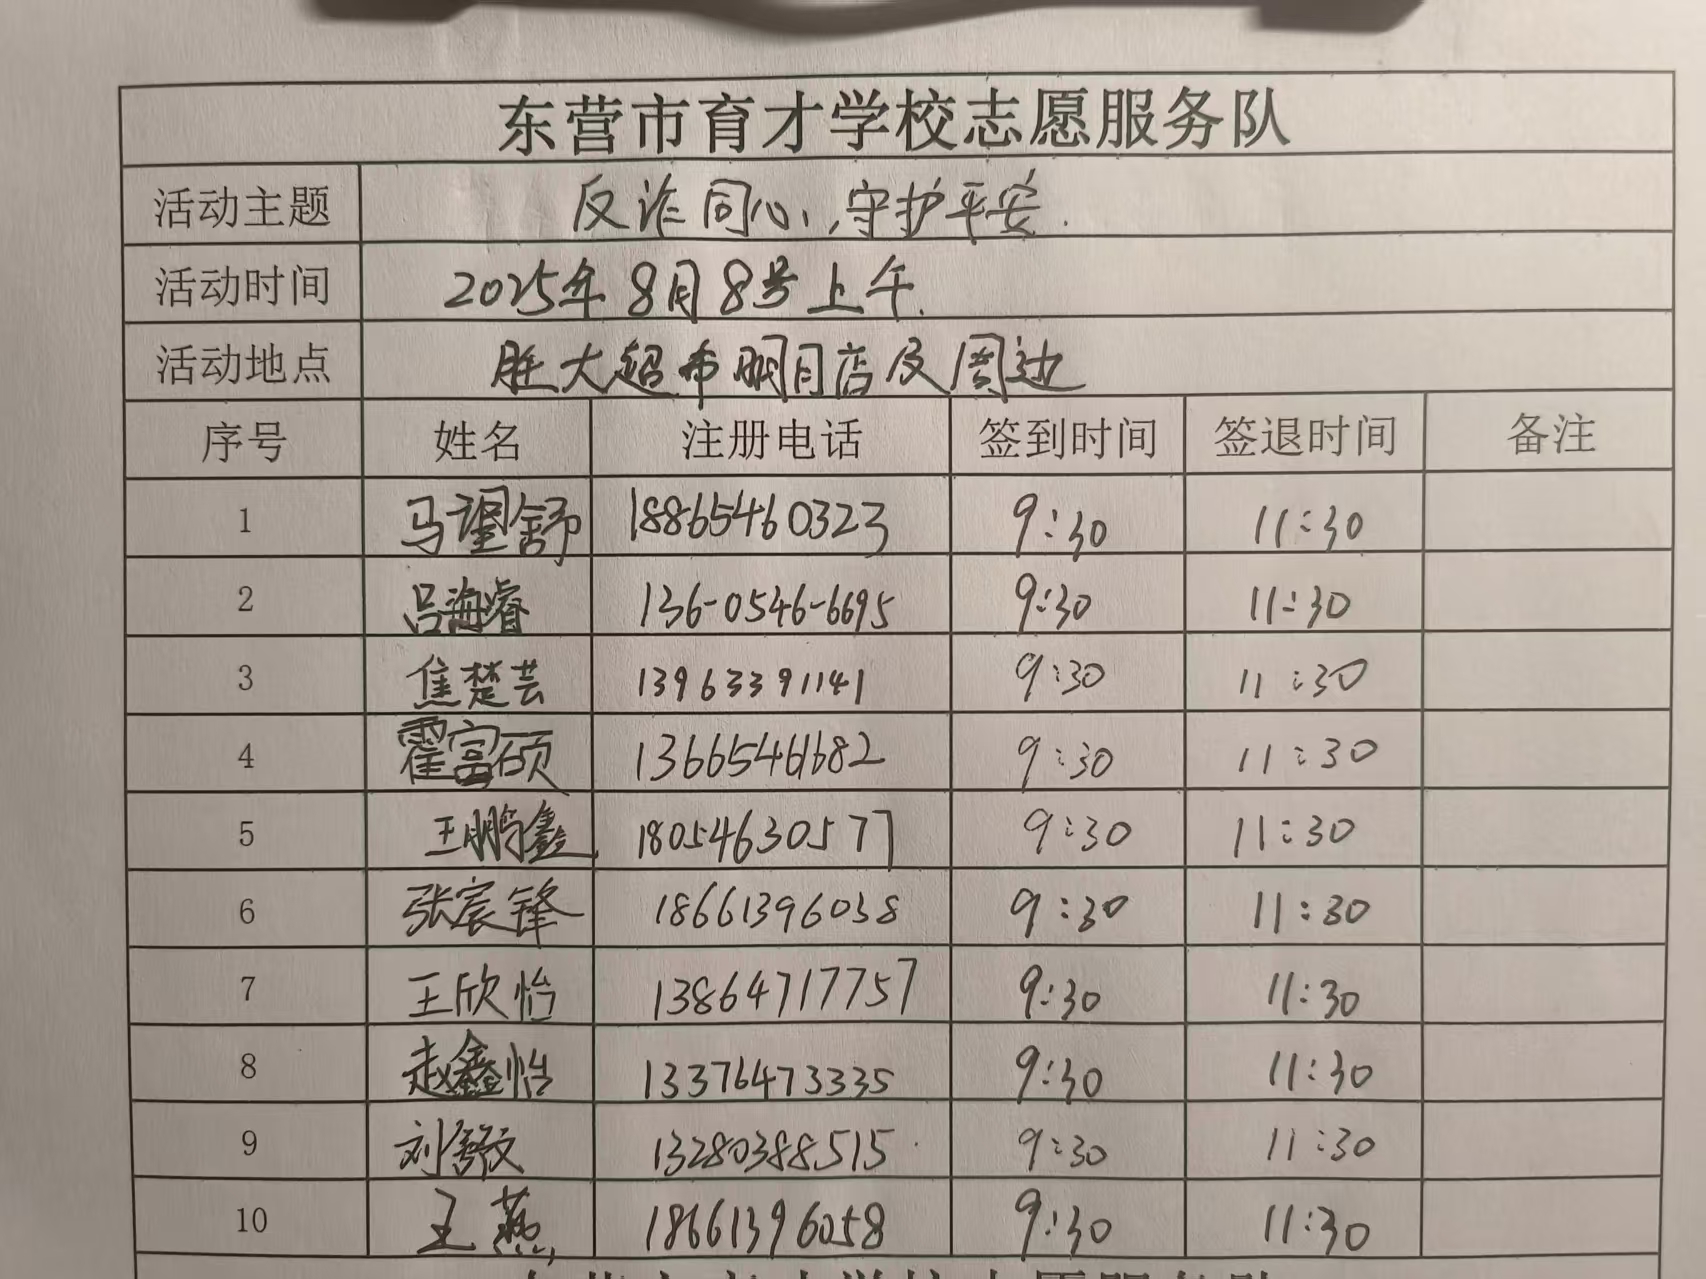 东营市育才学校志愿服务队
活动主题 反诈同心，守护平安.
活动时间 2025年8月8号上午.
活动地点 胜大超市明月店及周边
序号 姓名 注册电话 签到时间 签退时间 备注
1 马望舒 18865460323 9:30 11:30
2 吕海睿 136-0546-6695 9:30 11:30
3 焦楚芸 13963391141 9:30 11:30
4 霍富硕 13665461682 9:30 11:30
5 王鹏鑫 18054630577 9:30 11:30
6 张宸锋 18661396038 9:30 11:30
7 王欣怡 13864717757 9:30 11:30
8 赵鑫怡 13376473335 9:30 11:30
9 刘 13280388515 9:30 11:30
10 王燕 18661396058 9:30 11:30